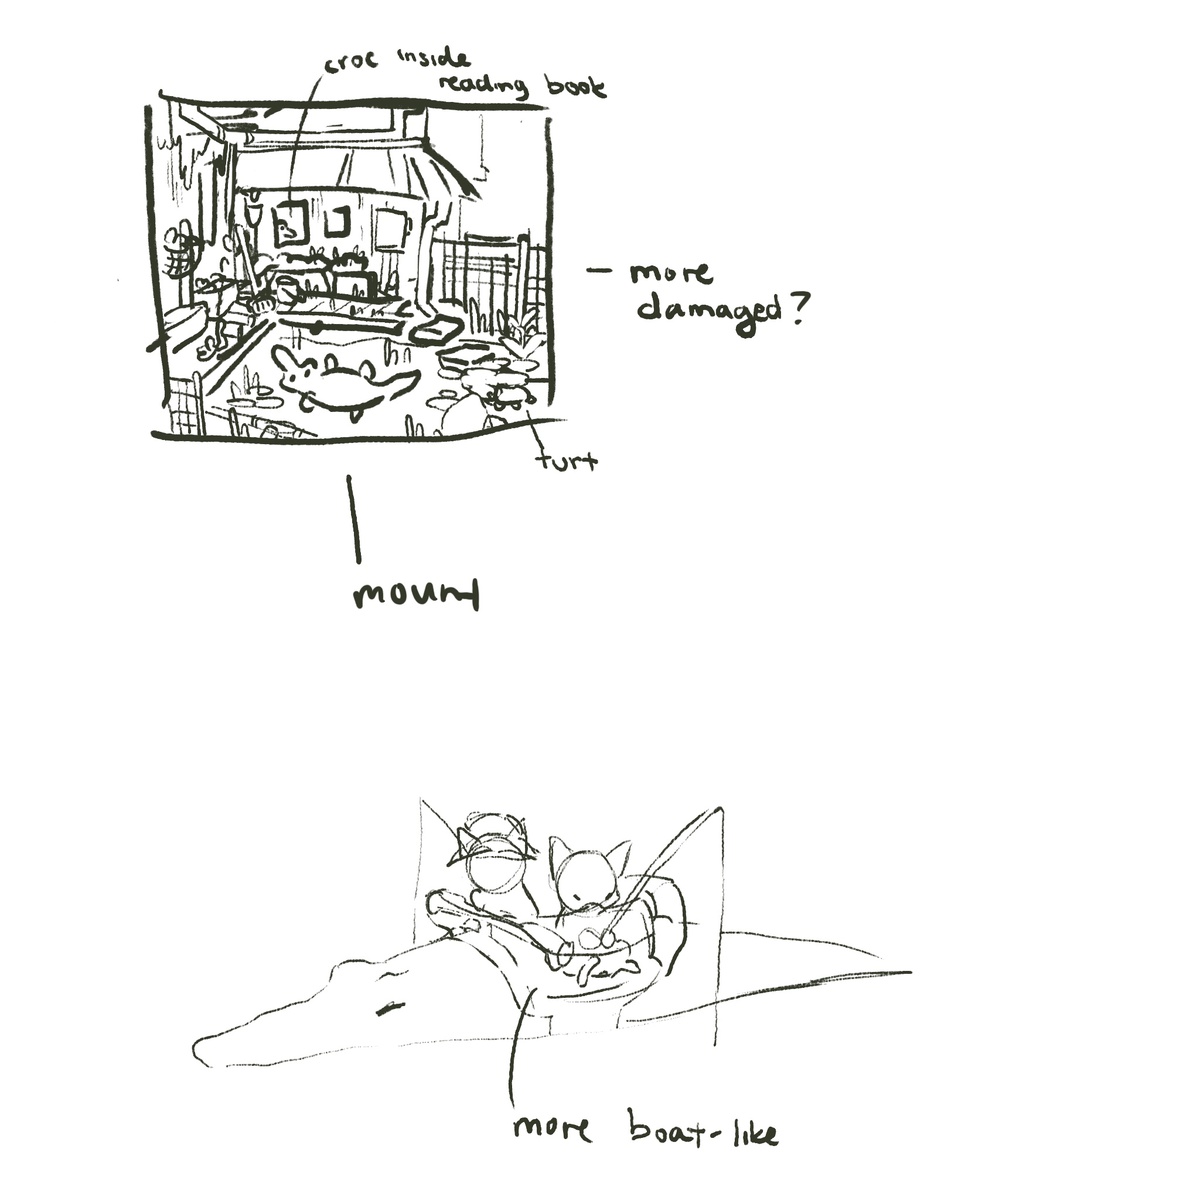 croc inside
reading book
- more
damaged?
turt
mount
more boat-like